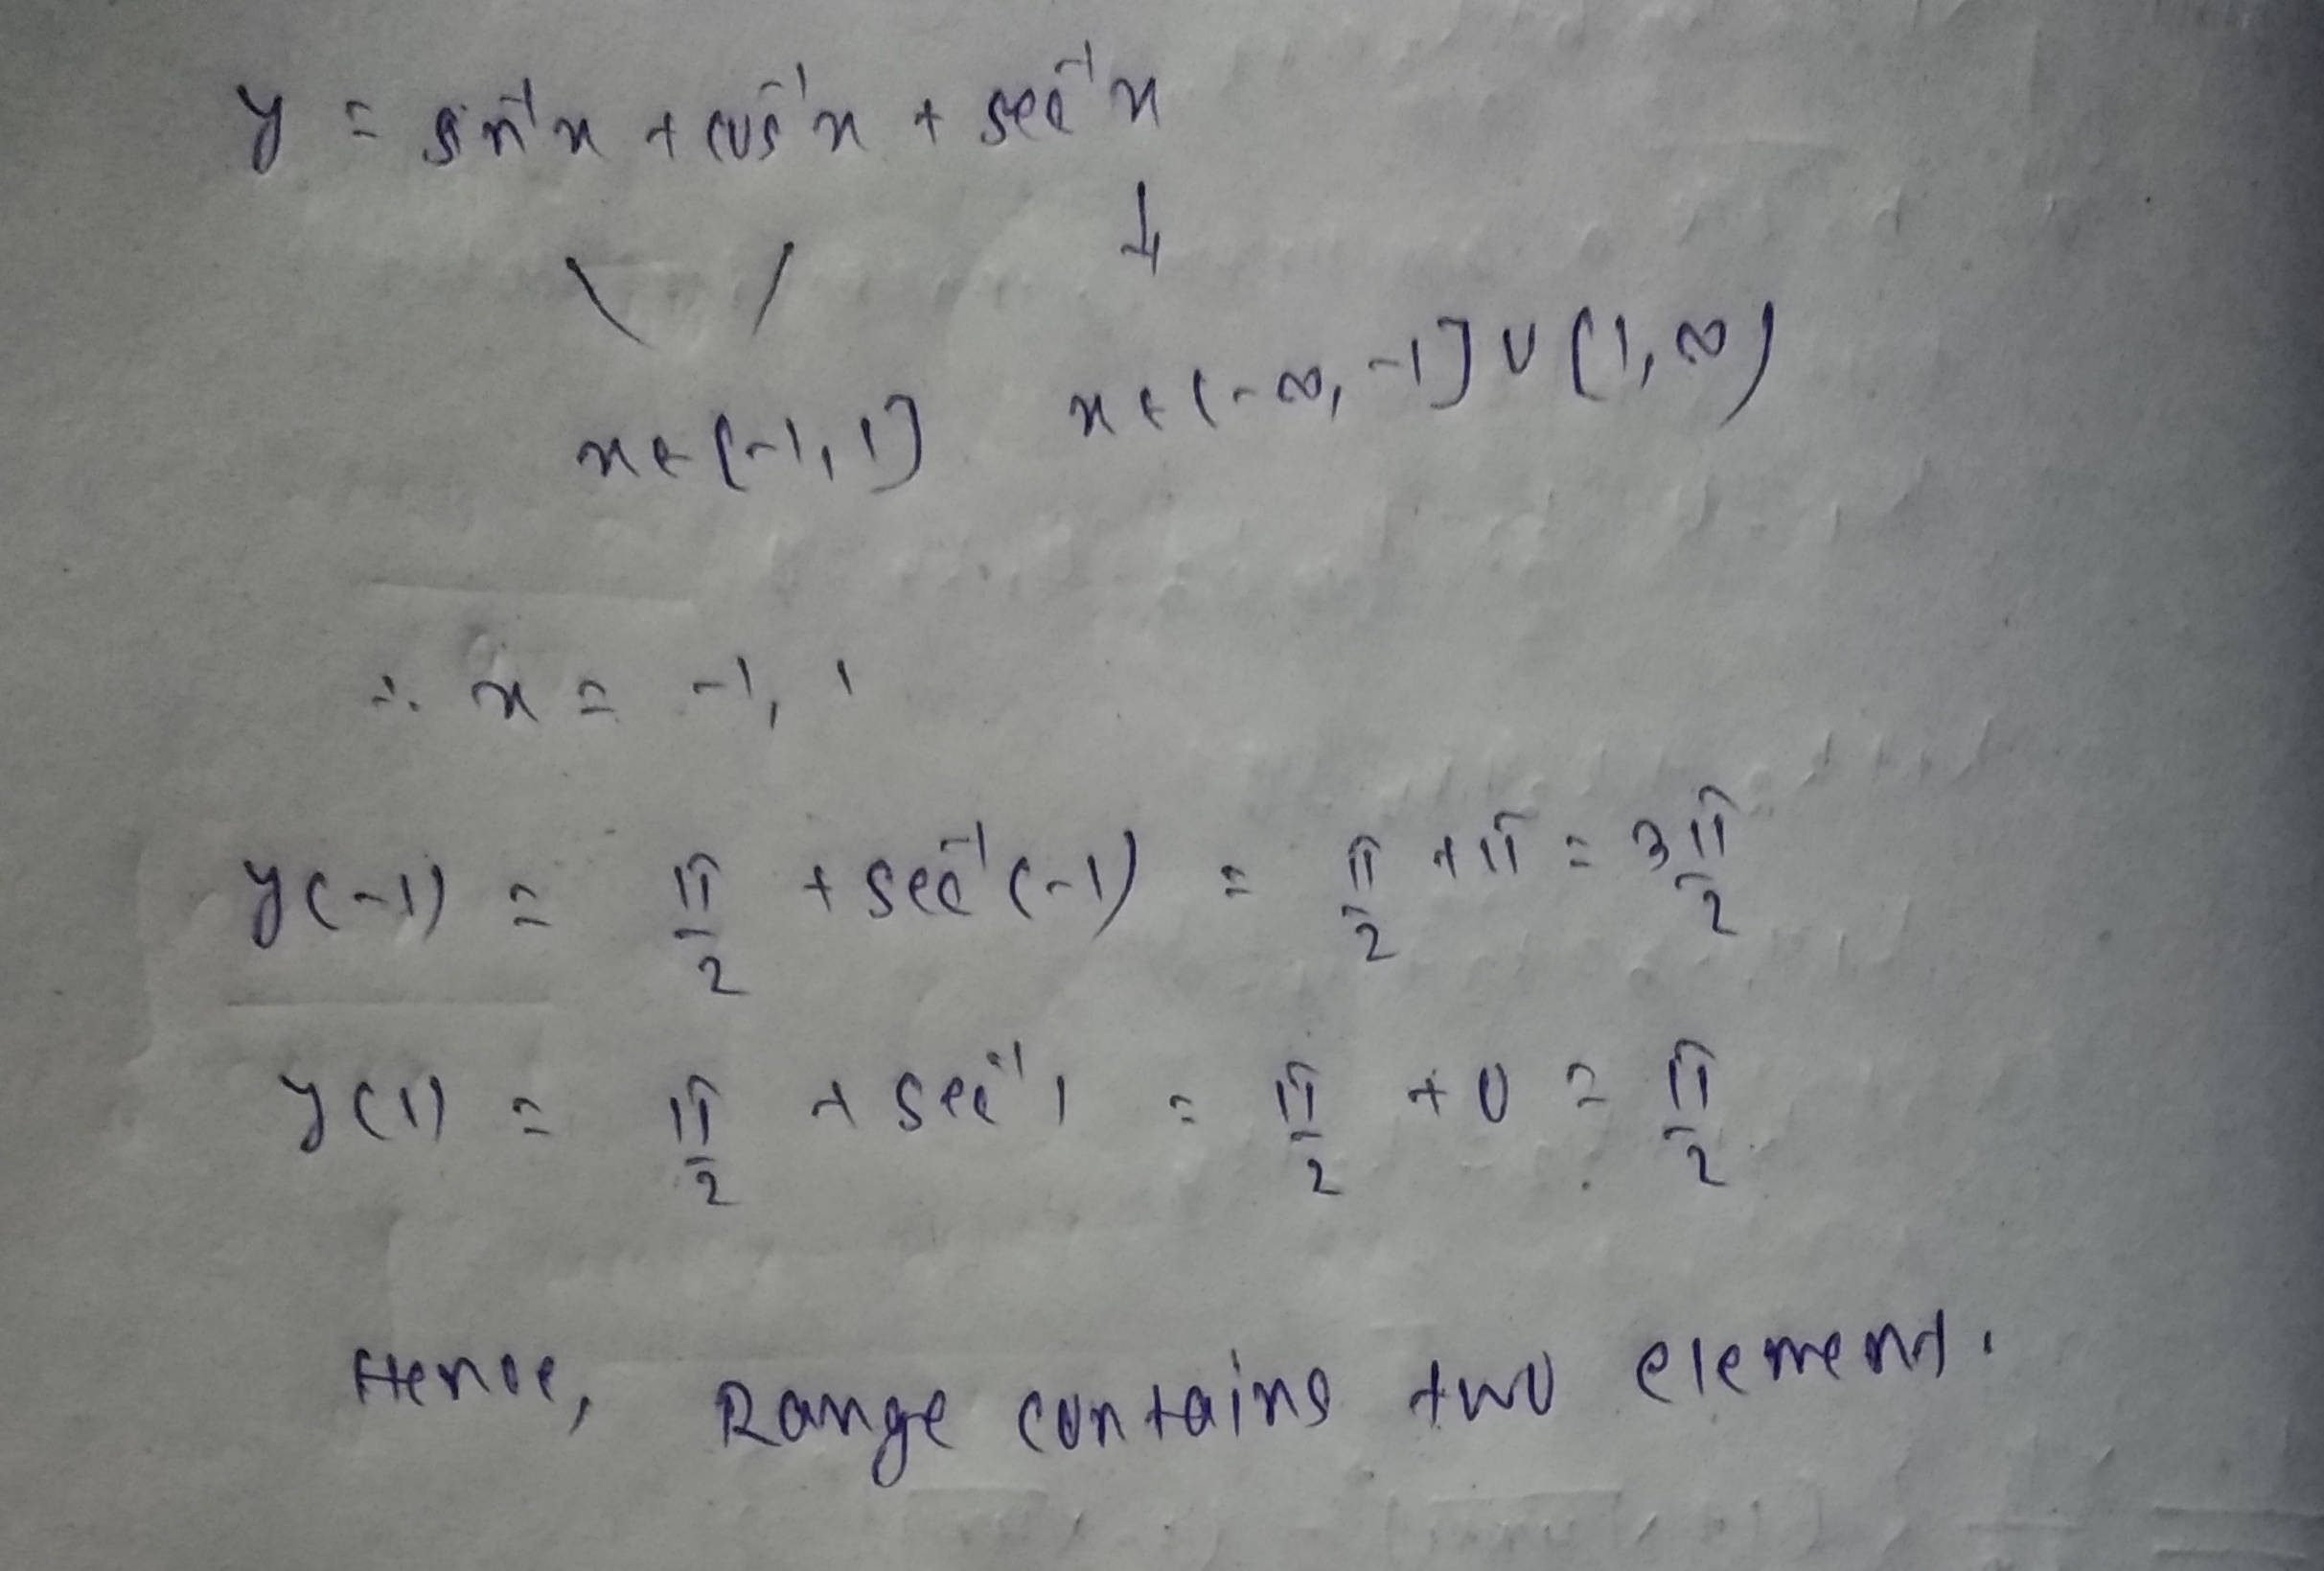 y = sin⁻¹x + cos⁻¹x + sec⁻¹x
x ∈ [-1, 1] x ∈ (-∞, -1] ∪ [1, ∞)
∴ x = -1, 1
y(-1) = π/2 + sec⁻¹(-1) = π/2 + π = 3π/2
y(1) = π/2 + sec⁻¹1 = π/2 + 0 = π/2
Hence, Range contains two element.